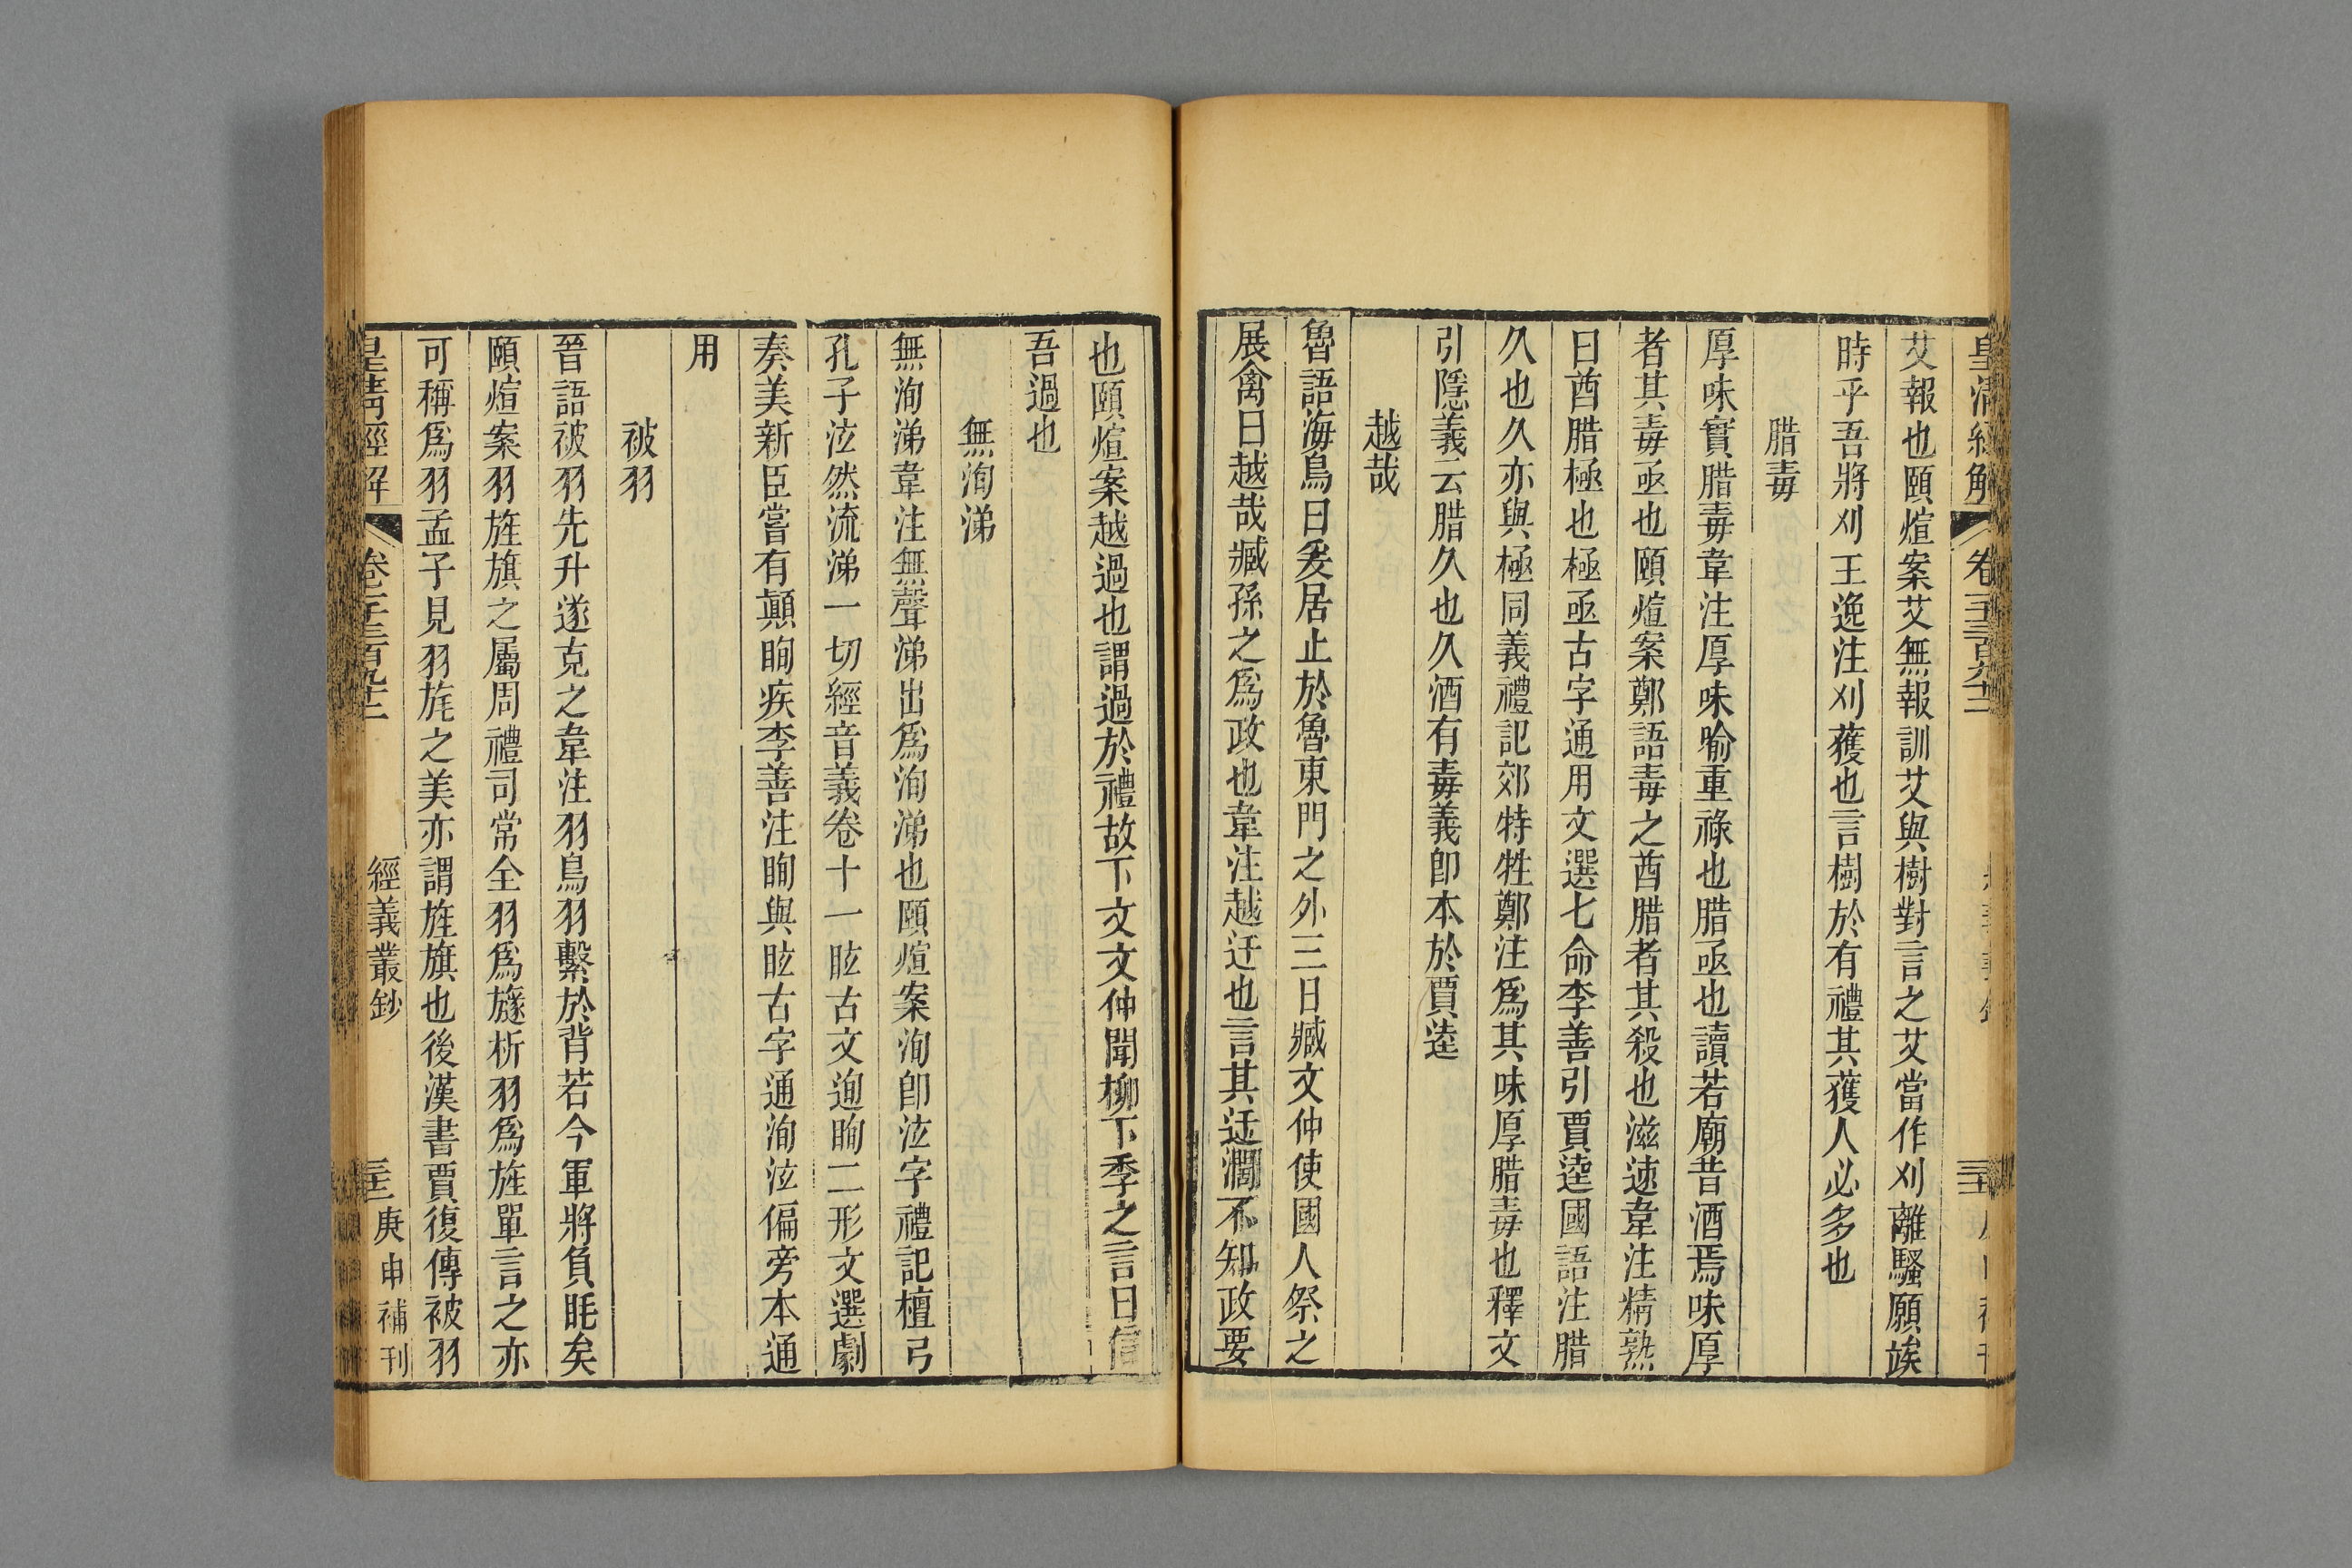 艾報也頤煊案艾無報訓艾與樹對言之艾當作刈離騷願竢
時乎吾將刈王逸注刈獲也言樹於有禮其獲人必多也
腊毒
厚味實腊毒韋注厚味喻重祿也腊亟也讀若廟昔酒焉味厚
者其毒亟也頤煊案鄭語毒之酋腊者其殺也滋速韋注精熟
曰酋腊極也極亟古字通用文選七命李善引賈逵國語注腊
久也久亦與極同義禮記郊特牲鄭注爲其味厚腊毒也釋文
引隱義云腊久也久酒有毒義卽本於賈逵
越哉
魯語海鳥曰爰居止於魯東門之外三日臧文仲使國人祭之
展禽曰越哉臧孫之爲政也韋注越迂也言其迂濶不知政要
也頤煊案越過也謂過於禮故下文文仲聞柳下季之言曰信
吾過也
無洵涕
無洵涕韋注無聲涕出爲洵涕也頤煊案洵卽泫字禮記檀弓
孔子泫然流涕一切經音義卷十一眩古文迿眴二形文選劇
秦美新臣嘗有顚眴疾李善注眴與眩古字通洵泫偏旁本通
用
被羽
晉語被羽先升遂克之韋注羽鳥羽繫於背若今軍將負眊矣
頤煊案羽旌旗之屬周禮司常全羽爲旞析羽爲旌單言之亦
可稱爲羽孟子見羽旄之美亦謂旌旗也後漢書賈復傳被羽
皇淸經解 經義叢鈔 庚申補刊